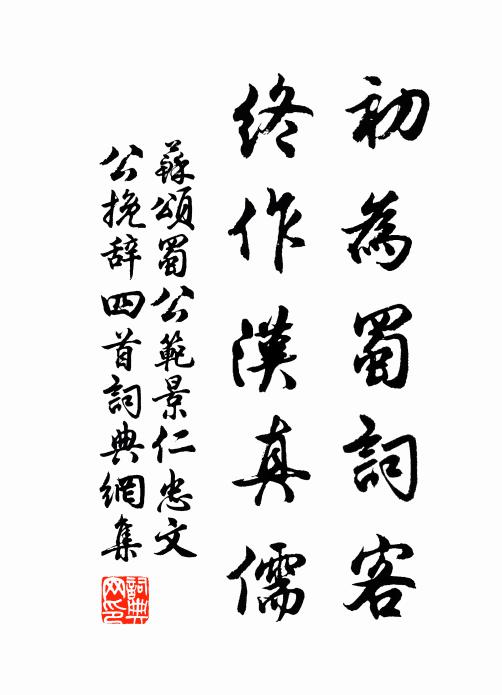 初為蜀詞客
終作漢真儒
蘇頌蜀公範景仁忠文
公挽辞四首詞典網集
詞典網印